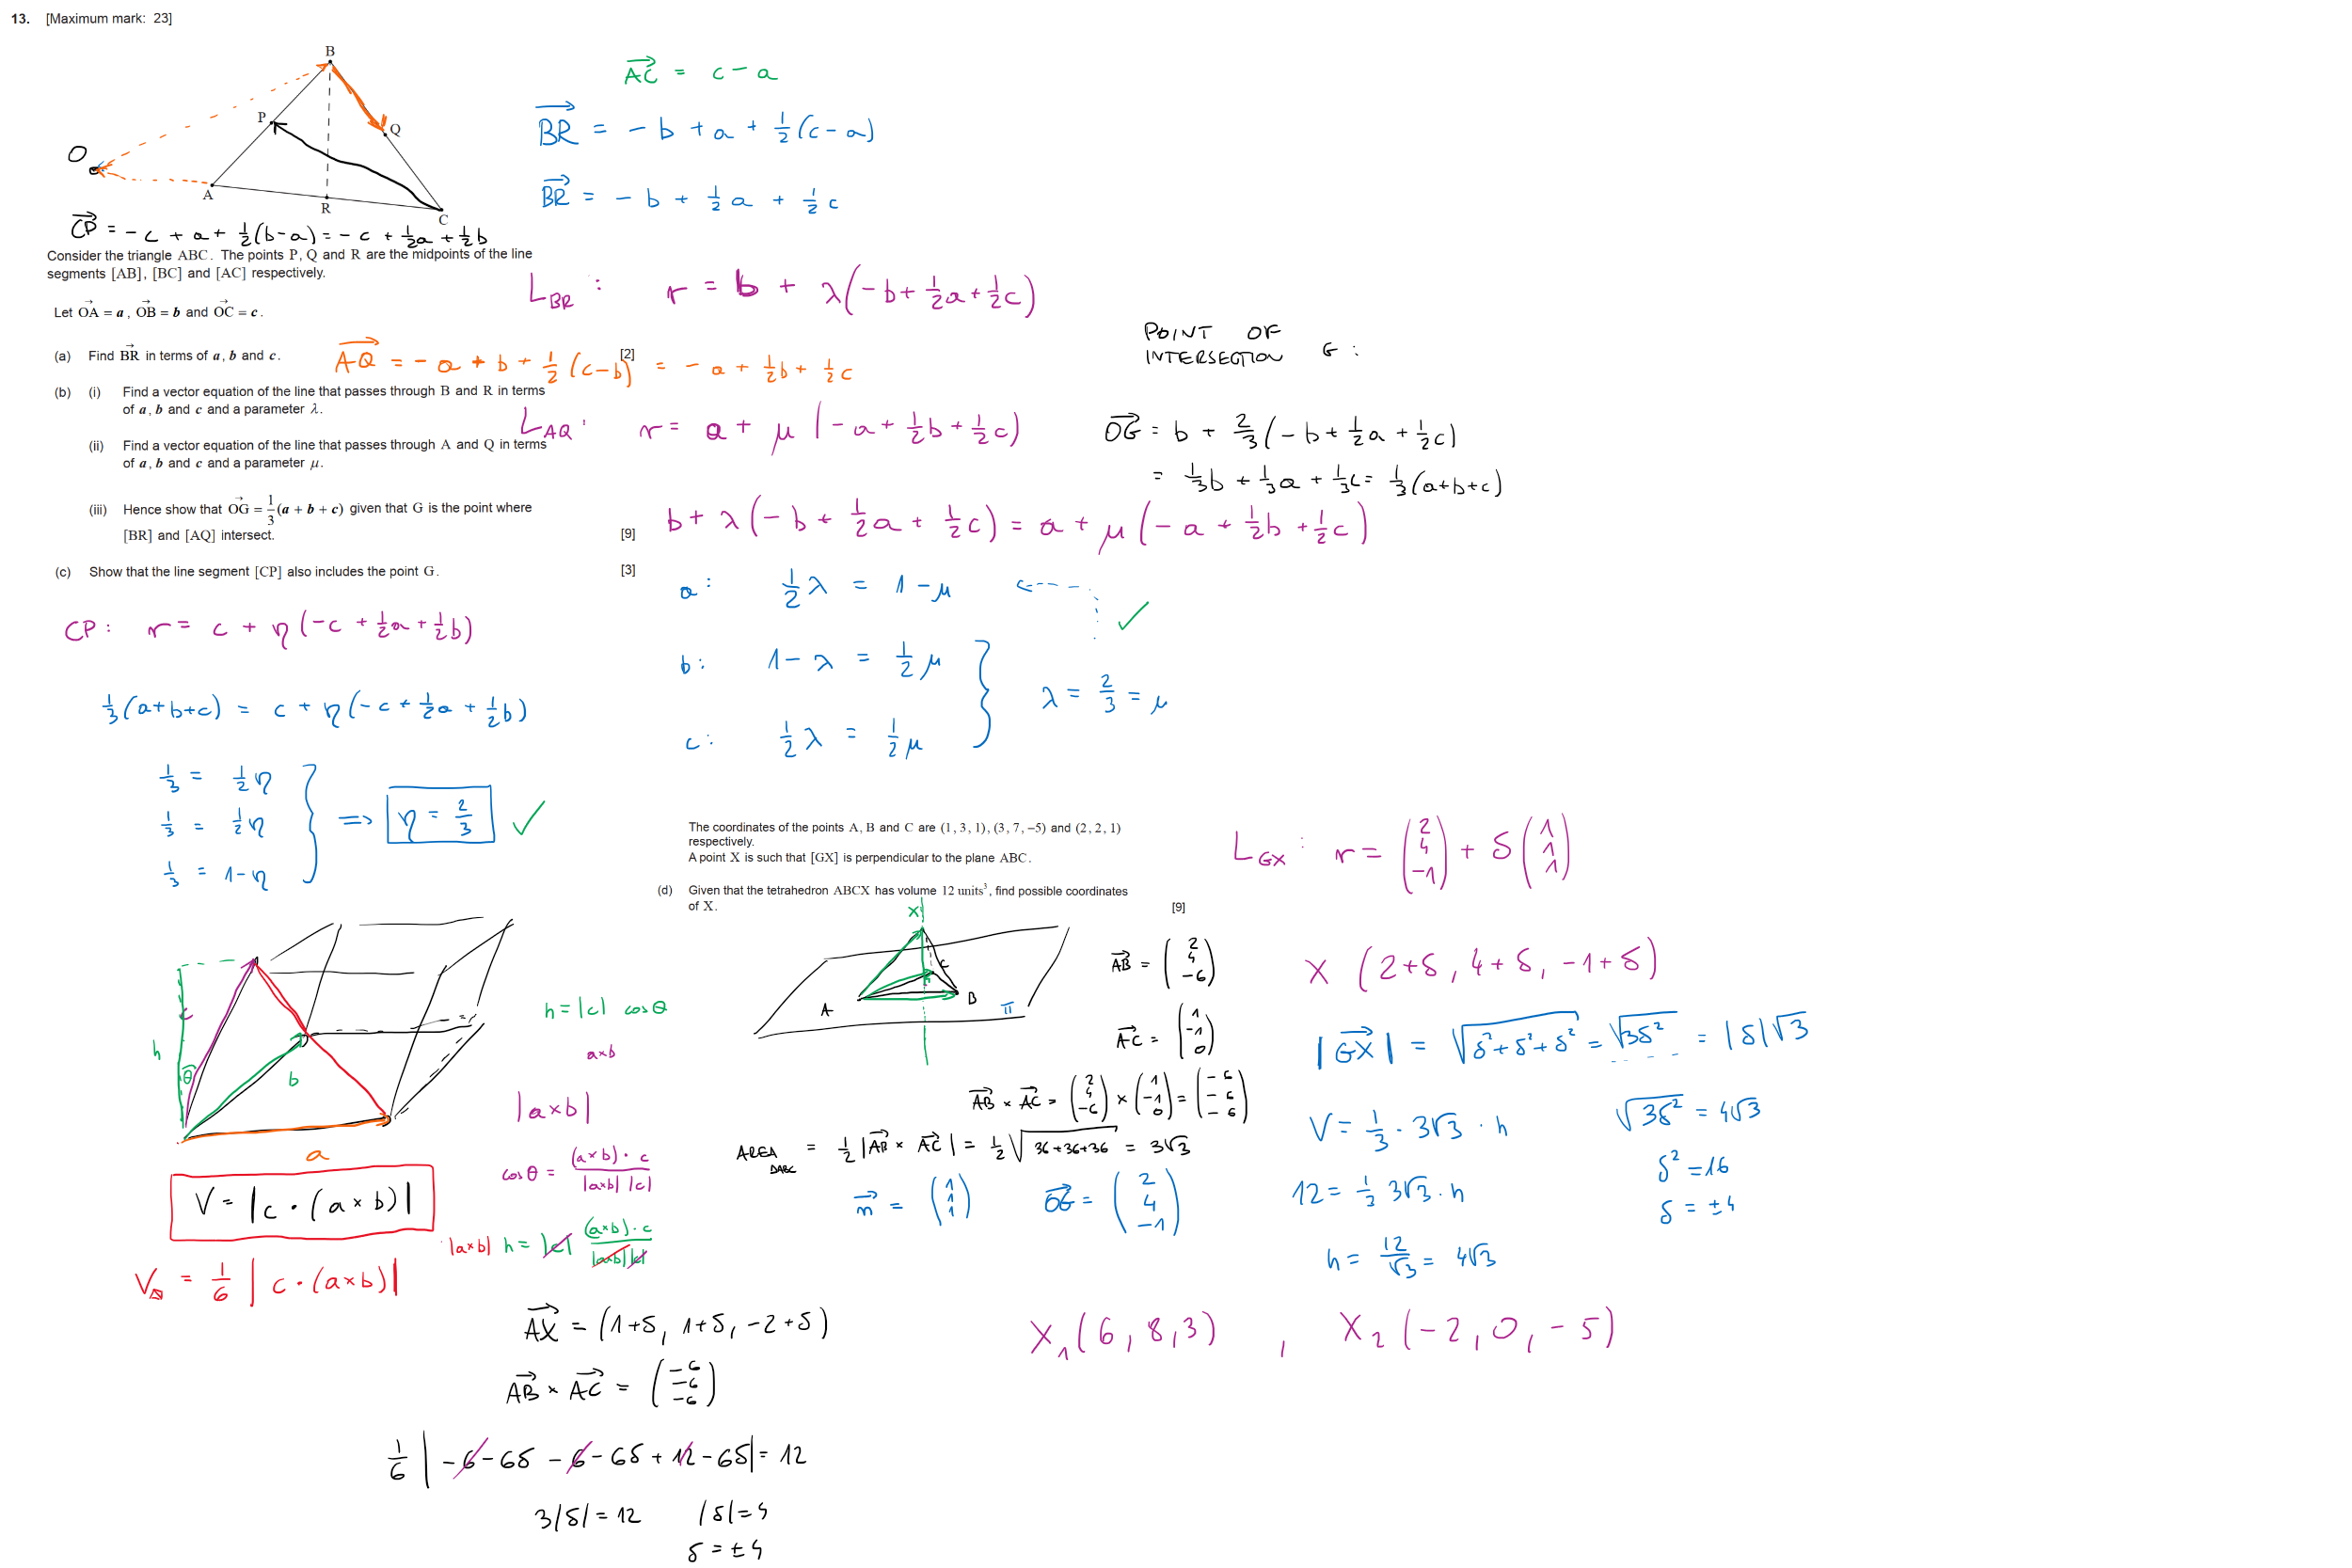 13. [Maximum mark: 23]
B
P
Q
O
A
R
C
CP = - c + a + 1/2(b-a) = - c + 1/2a + 1/2b
Consider the triangle ABC. The points P, Q and R are the midpoints of the line
segments [AB], [BC] and [AC] respectively.
Let OA = a, OB = b and OC = c.
(a) Find BR in terms of a, b and c. [2]
(b) (i) Find a vector equation of the line that passes through B and R in terms
of a, b and c and a parameter λ.
(ii) Find a vector equation of the line that passes through A and Q in terms
of a, b and c and a parameter μ.
(iii) Hence show that OG = 1/3(a + b + c) given that G is the point where
[BR] and [AQ] intersect. [9]
(c) Show that the line segment [CP] also includes the point G. [3]
AC = c - a
BR = - b + a + 1/2(c - a)
BR = - b + 1/2 a + 1/2 c
L BR : r = b + λ(-b + 1/2a + 1/2c)
AQ = - a + b + 1/2(c-b) = - a + 1/2b + 1/2c
L AQ : r = a + μ(-a + 1/2b + 1/2c)
POINT OF
INTERSECTION G :
OG = b + 2/3(-b + 1/2a + 1/2c)
= 1/3b + 1/3a + 1/3c = 1/3(a+b+c)
b + λ(-b + 1/2a + 1/2c) = a + μ(-a + 1/2b + 1/2c)
a: 1/2λ = 1 - μ
b: 1 - λ = 1/2μ
c: 1/2λ = 1/2μ
λ = 2/3 = μ
CP: r = c + η(-c + 1/2a + 1/2b)
1/3(a+b+c) = c + η(-c + 1/2a + 1/2b)
1/3 = 1/2η
1/3 = 1/2η
1/3 = 1-η
=> η = 2/3
The coordinates of the points A, B and C are (1, 3, 1), (3, 7, −5) and (2, 2, 1)
respectively.
A point X is such that [GX] is perpendicular to the plane ABC.
(d) Given that the tetrahedron ABCX has volume 12 units³, find possible coordinates
of X. [9]
X
A
B
C
π
AB = (2 4 -6)
AC = (1 -1 0)
AB × AC = (2 4 -6) × (1 -1 0) = (-6 -6 -6)
AREA ΔABC = 1/2 |AB × AC| = 1/2 √36+36+36 = 3√3
n = (1 1 1)
OG = (2 4 -1)
L GX : r = (2 4 -1) + δ(1 1 1)
X (2+δ, 4+δ, -1+δ)
|GX| = √δ²+δ²+δ² = √3δ² = |δ|√3
V = 1/3 · 3√3 · h
12 = 1/3 3√3 · h
h = 12/√3 = 4√3
√3δ² = 4√3
δ² = 16
δ = ±4
X₁(6, 8, 3) , X₂(-2, 0, -5)
h
θ
c
b
a
h = |c| cosθ
a×b
|a×b|
cosθ = (a×b)·c / |a×b| |c|
|a×b| h = |c| (a×b)·c / |a×b||c|
V = |c · (a × b)|
V = 1/6 |c · (a×b)|
AX = (1+δ, 1+δ, -2+δ)
AB × AC = (-6 -6 -6)
1/6 |-6-6δ -6-6δ + 12-6δ| = 12
3|δ| = 12 |δ| = 4
δ = ±4